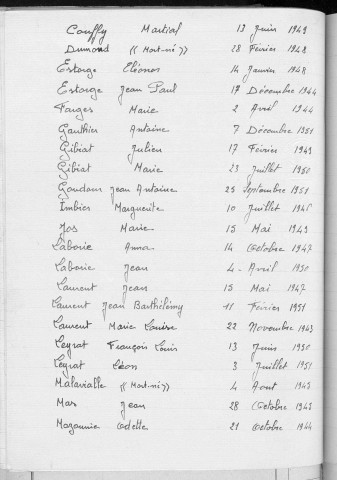 Couffy Martial 13 Juin 1949
Dumond "(Mort-né)" 28 Février 1948
Estorge Eléonor 14 Janvier 1948
Estorge Jean Paul 17 Décembre 1944
Farges Marie 2 Avril 1944
Gauthier Antoine 7 Décembre 1951
Gibiat Julien 17 Février 1949
Gibiat Marie 23 Juillet 1950
Goudour Jean Antoine 25 Septembre 1951
Imbier Marguerite 10 Juillet 1945
Jos Marie 15 Mai 1949
Laborie Anna 14 Octobre 1947
Laborie Jean 4 Avril 1950
Laurent Jean 15 Mai 1947
Laurent Jean Barthélémy 11 Février 1951
Laurent Marie Louise 22 Novembre 1943
Leyrat François Louis 13 Juin 1950
Leyrat Léon 3 Juillet 1951
Malavialle "(Mort-né)" 4 Aout 1945
Mas Jean 28 Octobre 1943
Mazounie Odette 21 Octobre 1944